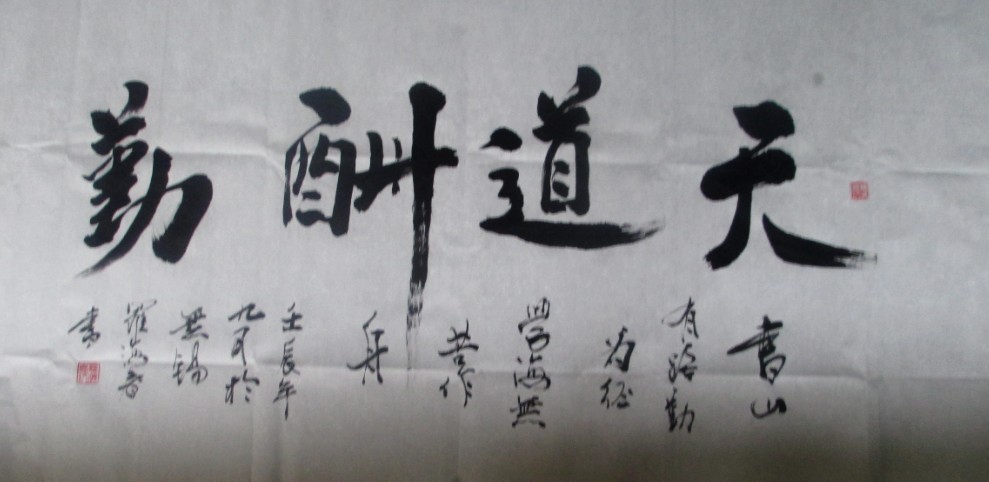 天道酬勤
書山
有路勤
为径
學海無
苦作
舟
壬辰年
九月於
無錫
羅海
書